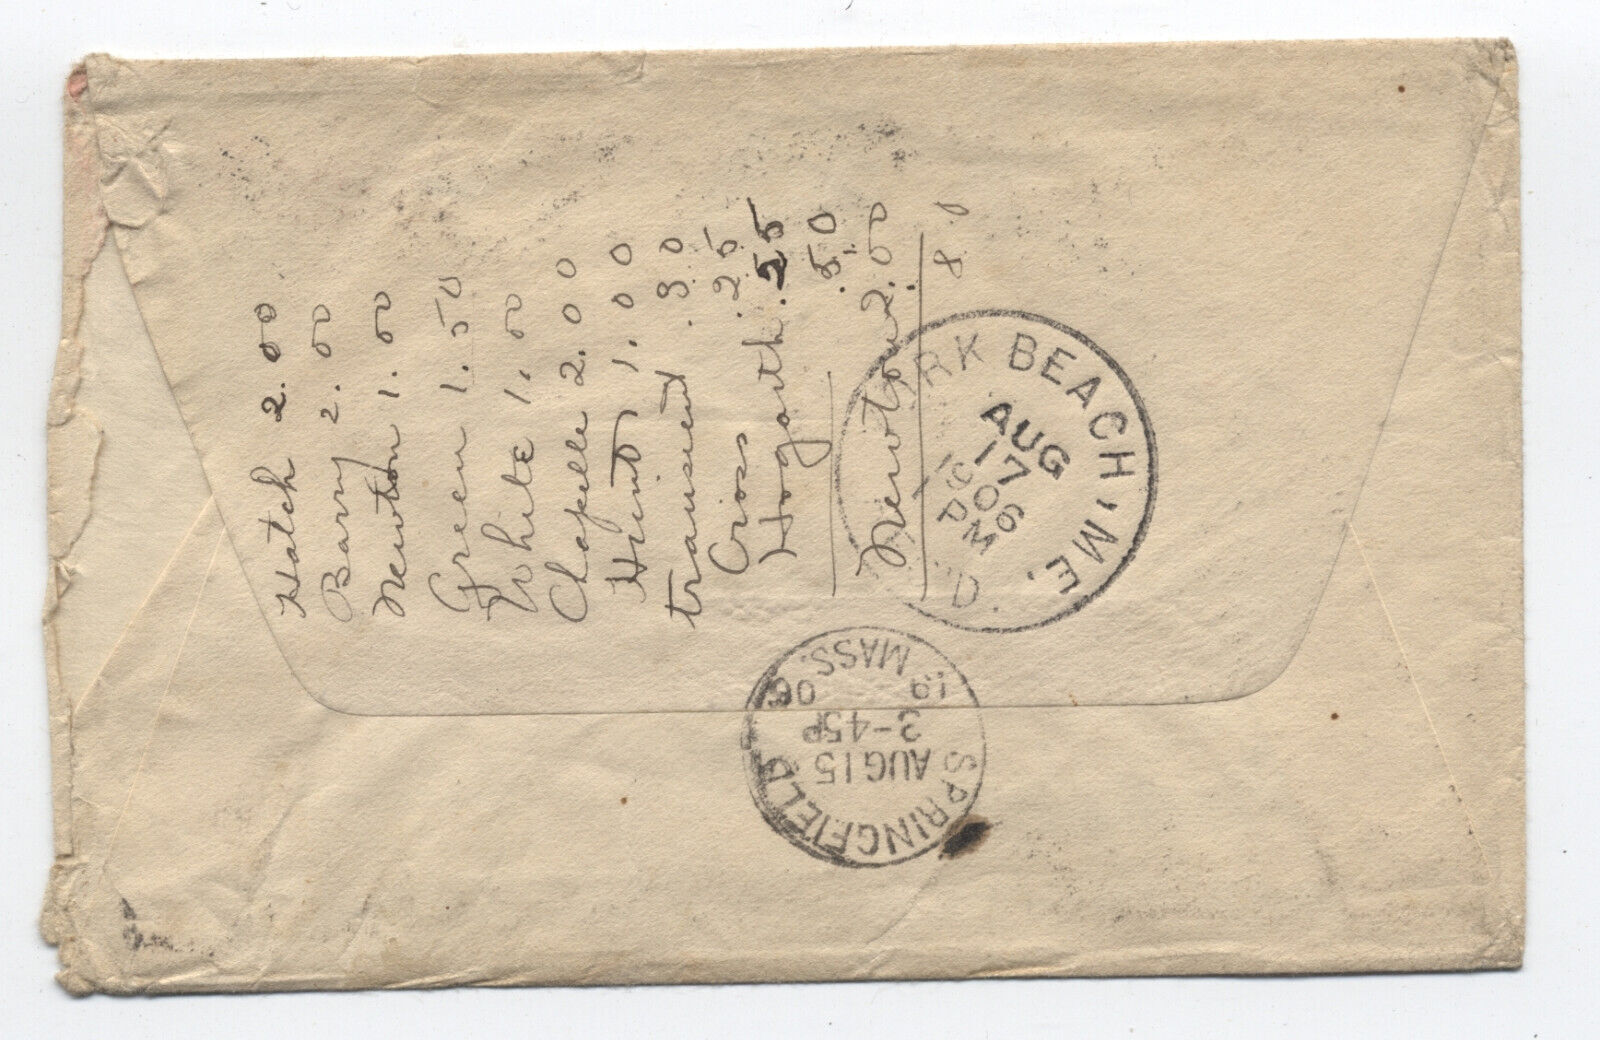 Hatch 2.00
Barry 2.00
Newton 1.00
Green 1.50
White 1.00
Chapelle 2.00
Hunt 1.00
transient .30
Cross .25
Hogarth .25
.50
Newton 2.00
80
RK BEACH, ME.
AUG
17
1906
PM
D.
SPRINGFIELD
AUG 15
3-45P
19 06
MASS.